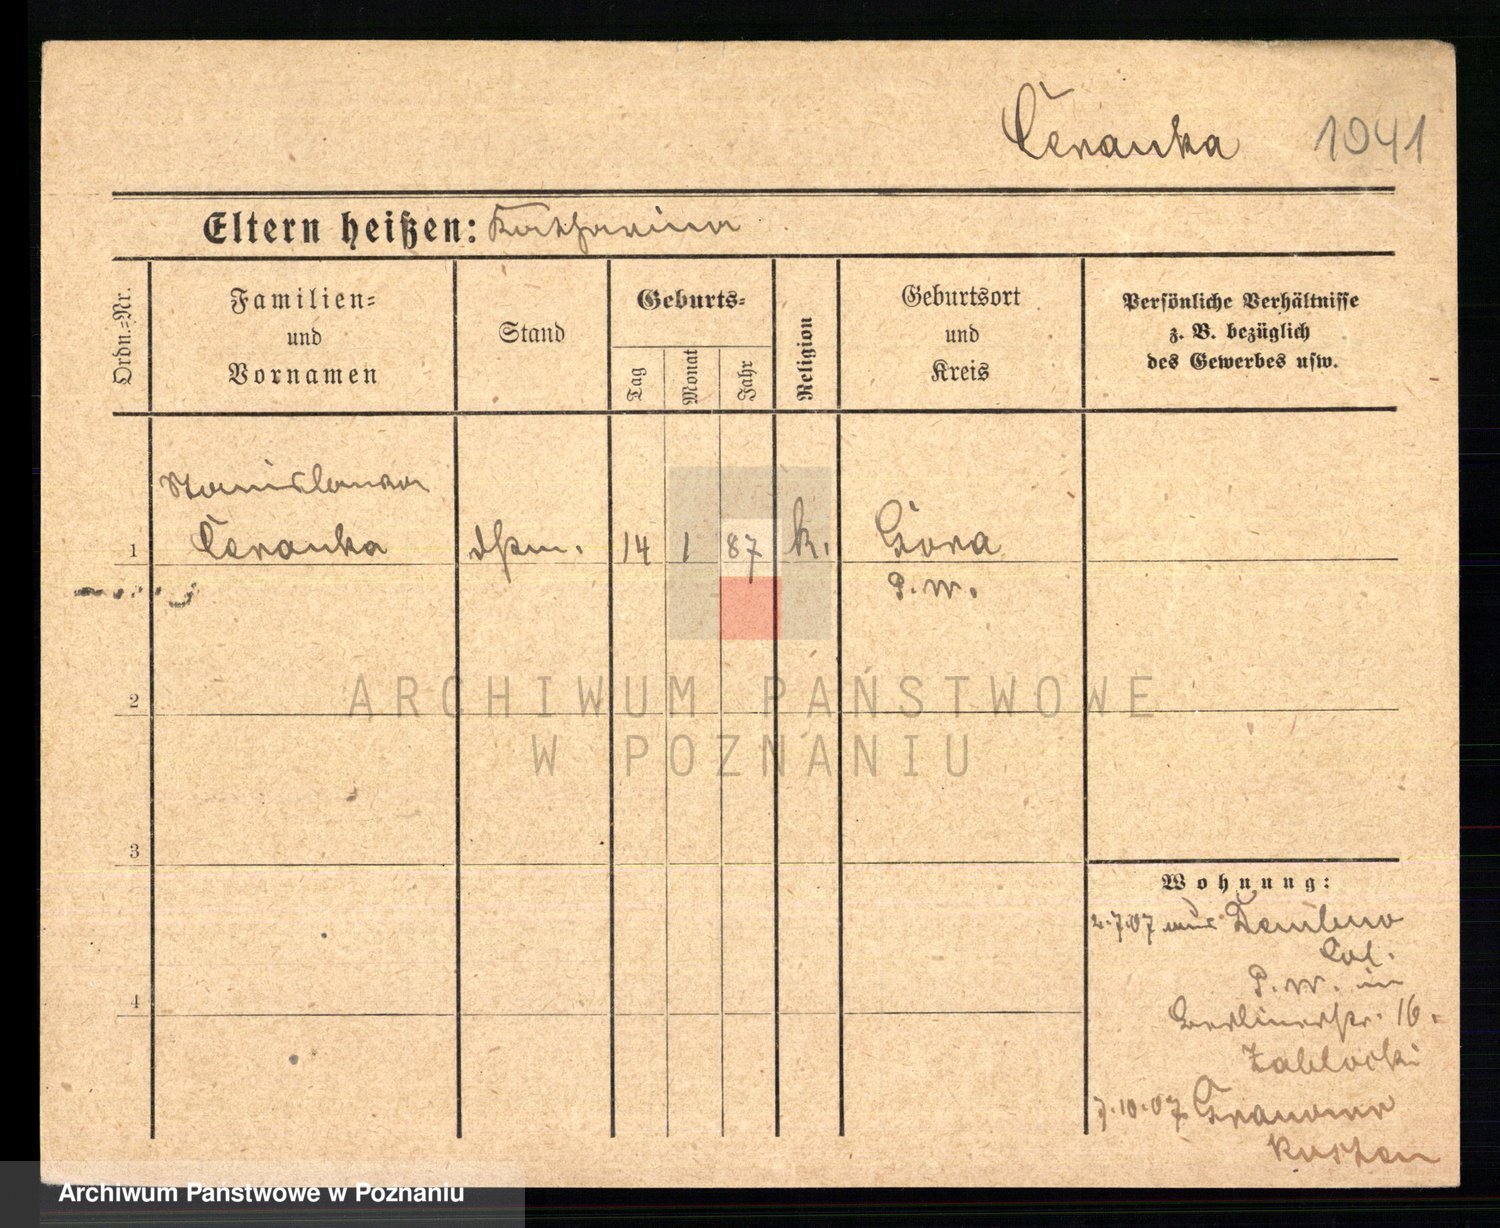 Ceranka 1041
Eltern heißen: Katharina
Ordn.-Nr.
Familien-
und
Vornamen
Stand
Geburts-
Tag
Monat
Jahr
Religion
Geburtsort
und
Kreis
Persönliche Verhältnisse
z. B. bezüglich
des Gewerbes usw.
Stanislawa
1 Ceranka 14 1 87 k. Góra
P. W.
2
3
4
ARCHIWUM PAŃSTWOWE
W POZNANIU
Wohnung:
2.7.07 aus
P. W. in
Berlinerstr. 16.
Zablocki
7.10.07
Kosten
Archiwum Państwowe w Poznaniu